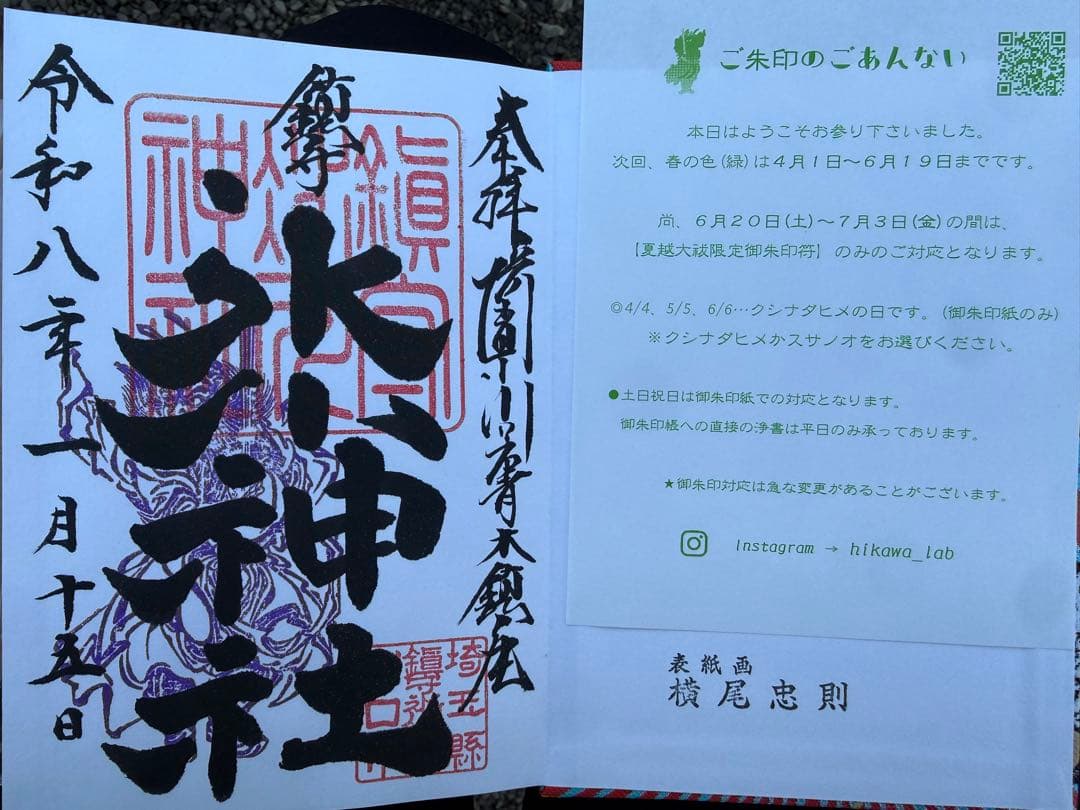 ご朱印のごあんない
本日はようこそお参り下さいました。
次回、春の色(緑)は4月1日～6月19日までです。
尚、6月20日(土)～7月3日(金)の間は、
【夏越大祓限定御朱印符】のみのご対応となります。
◎4/4、5/5、6/6…クシナダヒメの日です。(御朱印紙のみ)
※クシナダヒメかスサノオをお選びください。
●土日祝日は御朱印紙での対応となります。
御朱印帳への直接の浄書は平日のみ承っております。
★御朱印対応は急な変更があることがございます。
Instagram → hikawa_lab
表紙画
横尾忠則
奉拝 埼玉県川口市青木鎮座
鎮守
氷川神社
令和八年一月十五日